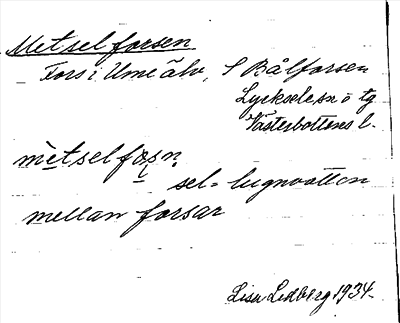 Metselforsen
Fors i Ume älv, S Bålforsen
Lycksele sn o tg
Västerbottens l.
mètselfɷṣn
sel = lugnvatten
mellan forsar
Lisa Lidberg 1934